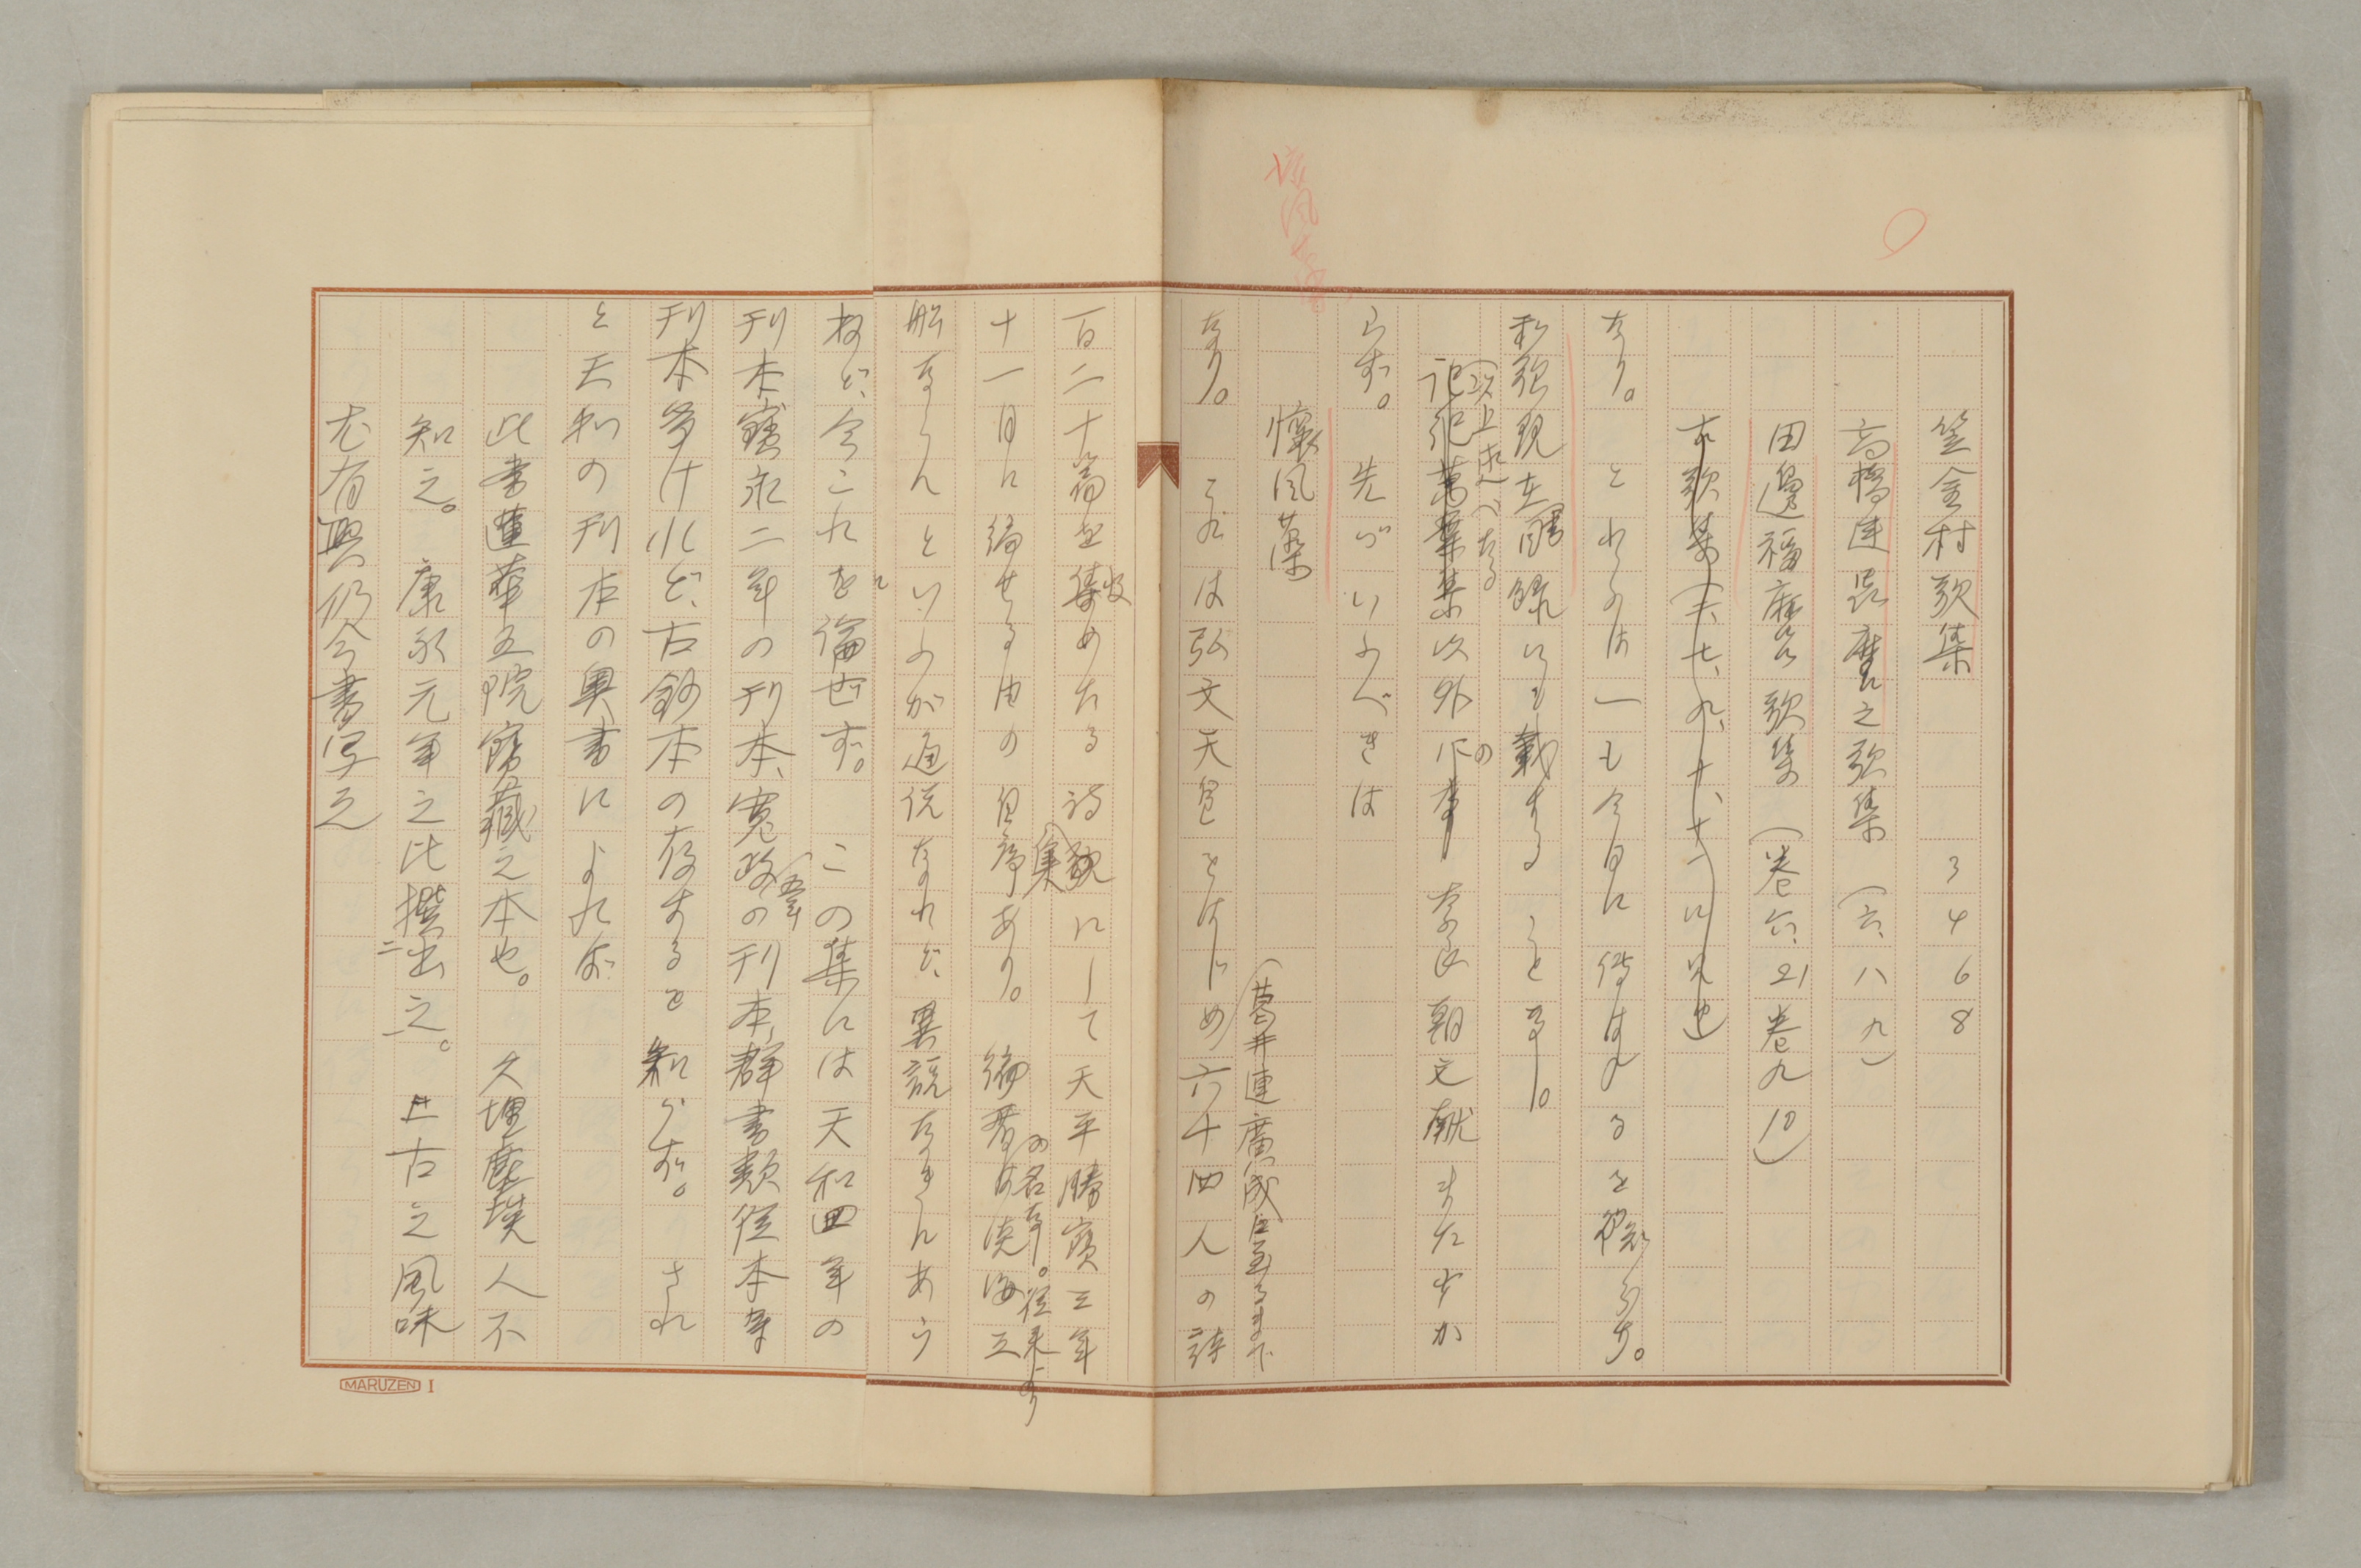 懐風藻
笠金村歌集 3 4 6 8
高橋連蟲麿之歌集 (六、八、九)
田邊福麿歌集 (巻六、21 巻九 10)
古歌集(二、七、九、十、十一)に見ゆ
なり。とれらは一も今日に傳はれるを知らず。
私稱現在書目錄にも載する ことなし。
(以上述べたる
記紀萬葉集以外の 奈良朝文献また少か
らず。先づいふべきは
懷風藻
(葛井連廣成に至るまで
なり。これは弘文天皇をはじめ六十四人の詩
百二十篇を集めたる詩集にして天平勝寶三年
收
十一月に編せる由の自序あり。編者は淡海三
の名なし。從来より
船ならんといふが通説なれど、異説なきにあら
ねど、今これを論せず。この集には天和四年の
刊本、寶永二年の刊本、寛政五年の刊本、群書類從本等
刊本多けれど、古鈔本の存するを知らず。され
ど天和の刊本の奥書によれば
此書蓮華王院寶藏之本也。久埋塵埃人不
知之。康永元年之比撰出之。上古之風味
尤有興仍令書写之
MARUZEN I